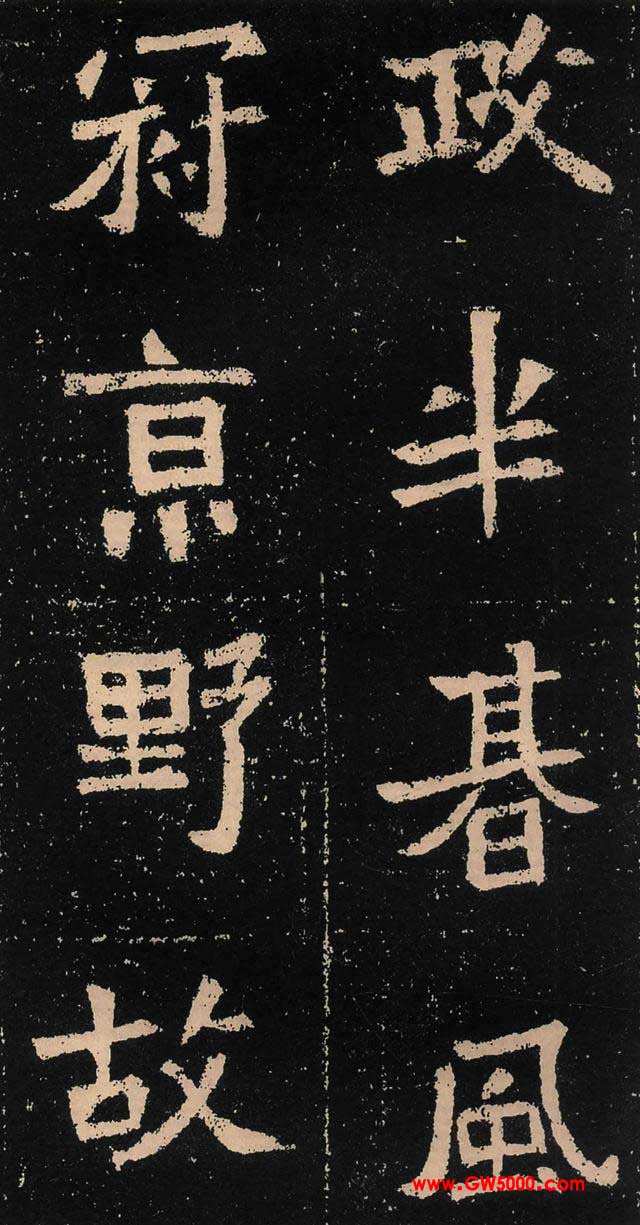 政半朞風
冠亰野故
www.GW5000.com